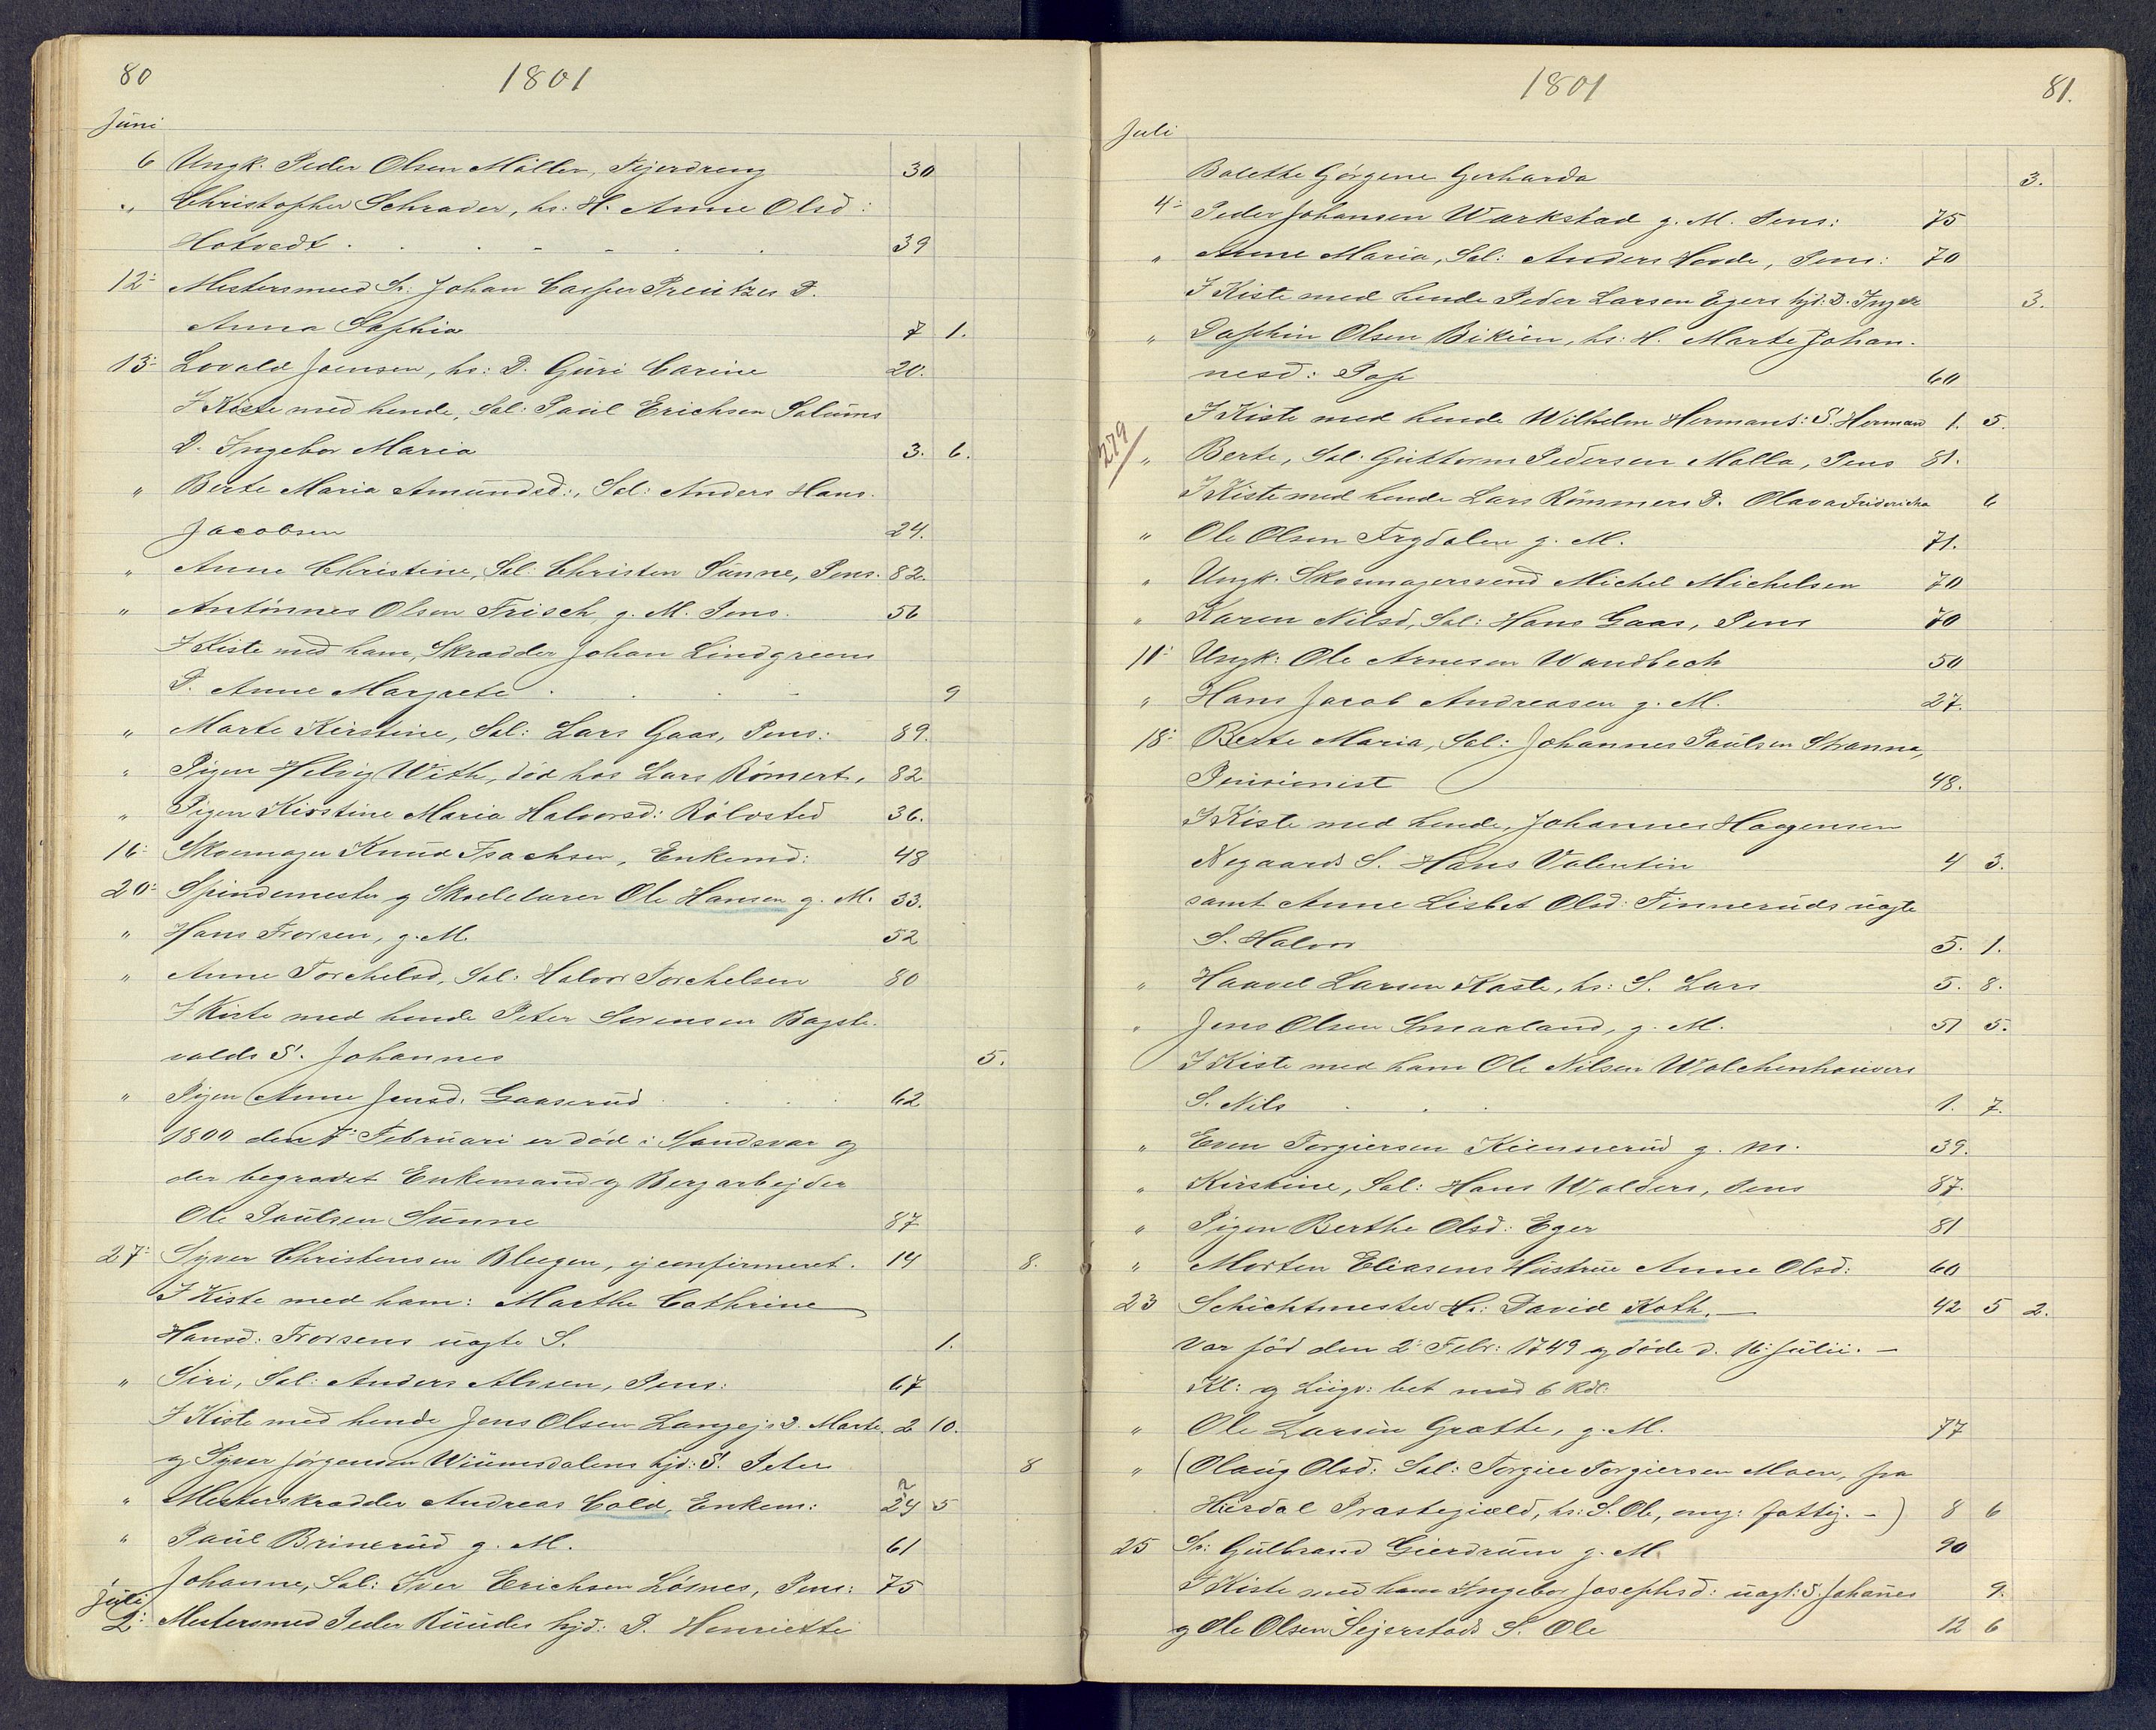 80
1801
Juni
6 Ungk. Peder Olsen Möller, Fejerdreng 30
" Christopher Schrader, hs: H. Anne Olsd:
Hotvedt . . . . . . 39
12: Mestersmed Sr: Johan Casper Preutzes D.
Anna Sophia 7 1.
13: Lovald Joensen, hs: D. Guri Carine 20.
I Kiste med hende, Sal: Paul Erichsen Salums
D. Ingebor Maria 3. 6.
" Berte Maria Amundsd:, Sal: Anders Hans
Jacobsen 24.
" Anne Christine, Sal: Christen Sunne, Pens. 82.
" Antönnes Olsen Frisch, g. M. Pens. 56
I Kiste med ham, Skrædder Johan Lindgreens
D. Anne Margrete . . . 9
" Marte Kirstine, Sal: Lars Gaas, Pens: 89.
" Pigen Helvig With, död hos Lars Römert, 82
" Pigen Kirstine Maria Halvorsd: Rölvsted 36.
16: Skoemager Knud Isachsen, Enkemd: 48
20: Spindemester og Skoelelærer Ole Hansen g. M. 33.
" Hans Frorsen, g. M. 52
" Anne Torchelsd, Sal: Halvor Torchelsen 80
I Kiste med hende Peter Sørensen Bagste-
valds S. Johannes 5.
" Pigen Anne Jensd. Gaaserud . . . 62
1800 den 7: Februari er død i Sandsvær og
der begravet Enkemand og Bergarbejder
Ole Paulsen Sunne 87
27: Syver Christensen Bleegen, ej confirmeret. 14 8.
I Kiste med ham: Marthe Cathrine
Hansd: Frorsens uægte S. 1.
" Siri, Sal: Anders Alvsen, Pens: 67
I Kiste med hende Jens Olsen Langejs D. Marte 2 10.
og Syver Jörgensen Wiumsdalens hjd: S. Peter 8
" Mesterskrædder Andreas Cold, Enkem: 5
" Paul Brinerud g. M. 61
Johanne, Sal: Iver Erichsen Lösnes, Pens: 75
Juli
2: Mestersmed Peder Ruudes hjd: D. Henriette
1801
81.
Juli
Bolette Görgene Gerharda 3.
4: Peder Johansen Warkstad g. M. Pens: 75
" Anne Maria, Sal: Anders Hovde, Pens: 70
I Kiste med hende Peder Larsen Egers hjd: D. Inger 3.
" Daphin Olsen Bikien, hs: H. Marte Johan-
nesd: Pose 60
I Kiste med hende Wilhelm Hermans: S. Herman 1. 5.
279
" Berte, Sal: Guttorm Pedersen Malla, Pens 81.
I Kiste med hende Lars Römmers D. Olava Fridericha 6
" Ole Olsen Frydalen g. M. 71.
" Ungk. Skoemagersvend Michel Michelsen 70
" Karen Nilsd, Sal: Hans Gaas, Pens 70
11: Ungk: Ole Arnesen Wandbech 50
" Hans Jacob Andreasen g. M. 27.
18: Berte Maria, Sal: Johannes Paulsen Stranna,
Pensionist 48.
I Kiste med hende, Johannes Haagensen
Nygaards S. Hans Valentin 4 3.
samt Anne Lisbet Olsd: Finneruds uægte
S. Halvor 5. 1.
" Haavel Larsen Kaste, hs: S. Lars 5. 8.
" Jens Olsen Smaaland, g. M. 51 5.
I Kiste med ham Ole Nilsen Wolchenhauers
S. Nils . . . 1. 7.
" Even Torgiersen Kiennerud g. M. 39.
" Kirstine, Sal: Hans Walders, Pens 87.
" Pigen Berthe Olsd: Eger 81
" Morten Eliasens Hustrue Anne Olsd: 60
23 Schichtmester Hr: David Koth. — 42 5 2.
Var föd den 2: Febr: 1749 og döde d. 16: Julii. —
Kl: og Liigv: bet med 6 Rdl.
" Ole Larsen Grotte, g. M. 77
" (Olaug Olsd: Sal: Torgier Torgiersen Moen, fra
Hierdal Præstegiæld, hs: S. Ole, omg: fattig. —) 8 6
25 Sr: Gulbrand Gierdrum g. M. 90
I Kiste med ham Ingebor Josephsd: uægt: S. Johannes 9.
og Ole Olsen Sejerstads S. Ole 12 6